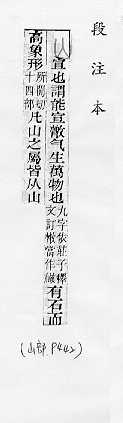 段注本
山 宣也謂能宣散气生萬物也九字依莊子釋文訂 有石而
高象形所閒切十四部凡山之屬皆从山
(山部 P442)